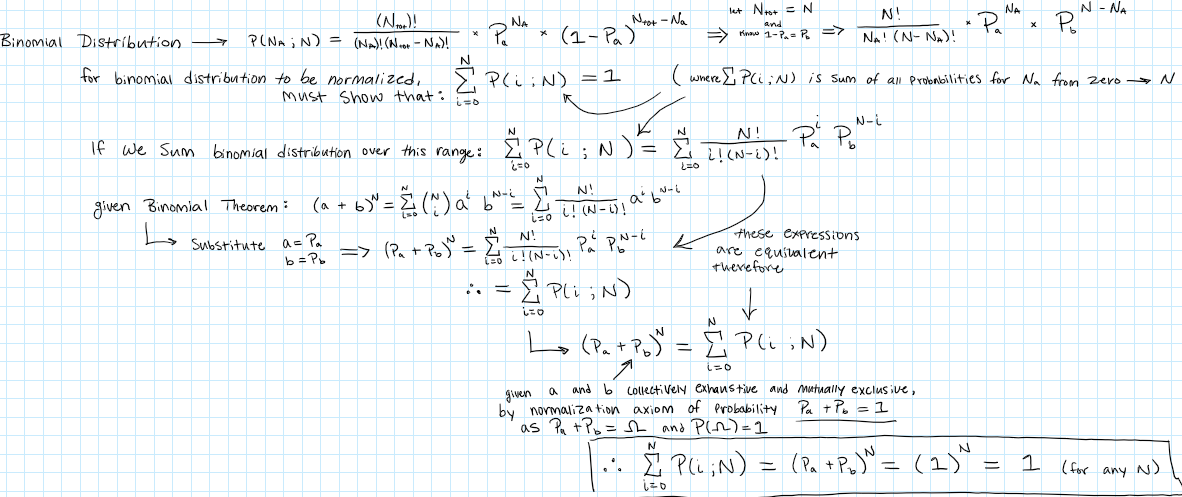 Binomial Distribution → P(N_A ; N) = (N_tot)! / (N_A)!(N_tot - N_A)! * P_a^N_A * (1-P_a)^(N_tot - N_a) ⇒ let N_tot = N and know 1-P_a = P_b ⇒ N! / N_A! (N-N_A)! * P_a^N_A * P_b^(N-N_A)
for binomial distribution to be normalized, must show that: Σ_{i=0}^{N} P(i ; N) = 1 ( where Σ P(i ; N) is sum of all probabilities for N_a from zero → N
If we sum binomial distribution over this range: Σ_{i=0}^{N} P(i ; N) = Σ_{i=0}^{N} N! / i!(N-i)! P_a^i P_b^(N-i)
given Binomial Theorem: (a + b)^N = Σ_{i=0}^{N} (N i) a^i b^(N-i) = Σ_{i=0}^{N} N! / i!(N-i)! a^i b^(N-i)
Substitute a = P_a b = P_b ⇒ (P_a + P_b)^N = Σ_{i=0}^{N} N! / i!(N-i)! P_a^i P_b^(N-i)
these expressions
are equivalent
therefore
∴ = Σ_{i=0}^{N} P(i ; N)
(P_a + P_b)^N = Σ_{i=0}^{N} P(i ; N)
given a and b collectively exhaustive and mutually exclusive,
by normalization axiom of probability P_a + P_b = 1
as P_a + P_b = Ω and P(Ω) = 1
∴ Σ_{i=0}^{N} P(i ; N) = (P_a + P_b)^N = (1)^N = 1 (for any N)